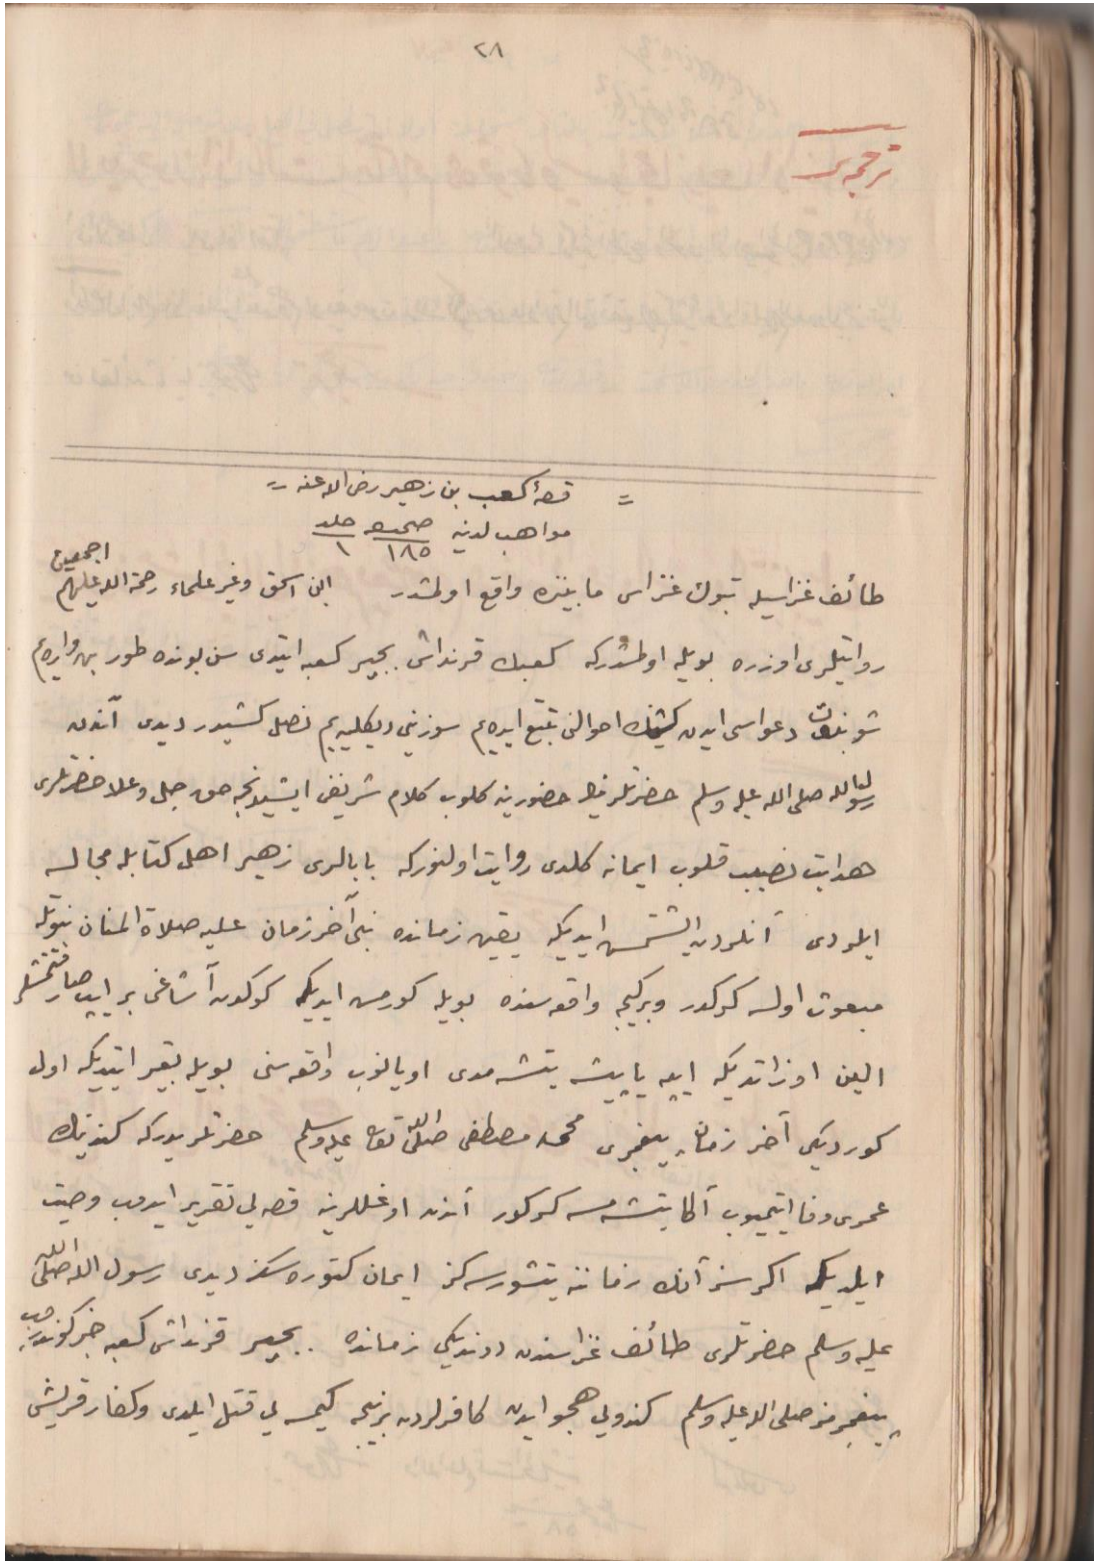 ٢٨
ترجمه سی
= قصهٔ كعب بن زهير رضی الله عنه =
مواهب لدنيه صحيفه ١٨٥ جلد ١
طائف غزاسيله تبوك غزاسی مابيننده واقع اولمشدر ابن اسحق وغير علماء رحمة الله عليهم اجمعين
روايتلری اوزره بويله اولمشدركه كعبك قرنداشی بجير كعبه ايتدی سن بونده طور بن وارهيم
شو نبوت دعواسی ايدن كيشينك احوالنی تتبع ايدهيم سوزينی ديكليهيم نصل كشيدر ديدی آندن
رسول الله صلی الله عليه وسلم حضرتلرينك حضورينه كلوب كلام شريفن ايشيدنجه حق جل وعلا حضرتلری
هدايت نصيب قلوب ايمانه كلدی روايت اولنوركه بابالری زهير اهل كتابله مجالسه
ايلردی آنلردن ايشتمش ايديكه يقين زمانده نبی آخر زمان عليه صلاة المنان نبوتله
مبعوث اولسه كركدر وبر كيجه واقعه سنده بويله كورمش ايديكه كوكدن آشاغی بر ايپ صارقتمشلر
الين اوزاتديكه ايپه ياپيشه يتشه مدی اويانوب واقعه سنی بويله تعبير ايتديكه اول
كورديكی آخر زمان پيغمبری محمد مصطفی صلی الله تعالی عليه وسلم حضرتلريدركه كندينك
عمری وفا ايتميوب آكا يتشمسه كركدر آندن اوغللرينه قصه يی تقرير ايدوب وصيت
ايلديكه اكر سز آنك زماننه يتشورسه كز ايمان كتوره سكز ديدی رسول الله صلی الله
عليه وسلم حضرتلری طائف غزاسندن دونديكی زمانده بجير قرنداشی كعبه خبر كوندروب
پيغمبرمز صلی الله عليه وسلم كندويی هجو ايدن كافرلردن برنيجه كيمسه يی قتل ايلدی وكفار قريشی